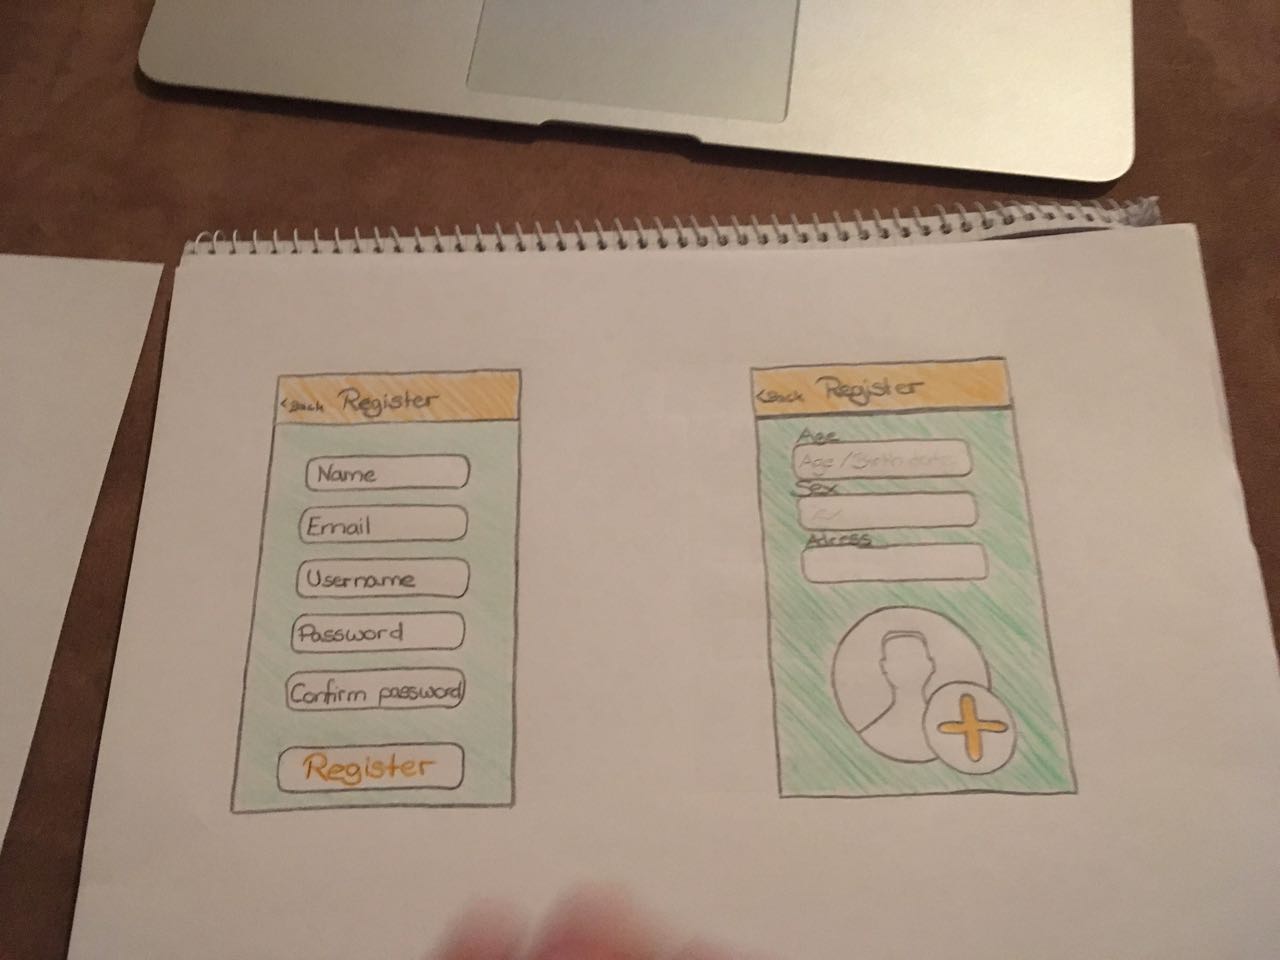 <Back Register
Name
Email
Username
Password
Confirm password
Register
<Back Register
Age
Age / Birth date
Sex
Adress